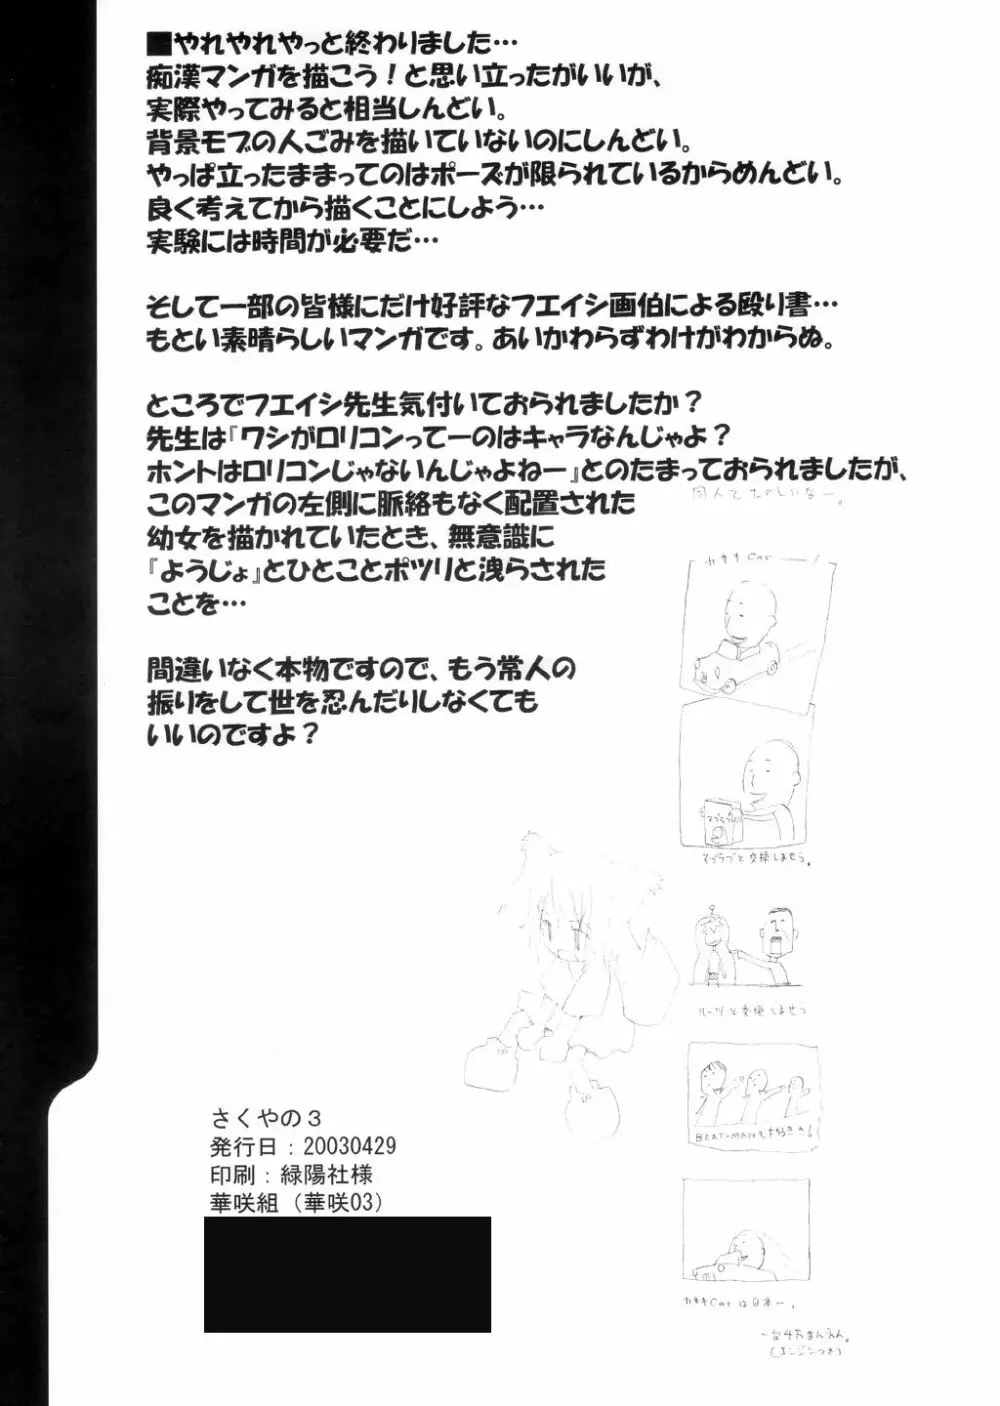 ■やれやれやっと終わりました…
痴漢マンガを描こう！と思い立ったがいいが、
実際やってみると相当しんどい。
背景モブの人ごみを描いていないのにしんどい。
やっぱ立ったままってのはポーズが限られているからめんどい。
良く考えてから描くことにしよう…
実験には時間が必要だ…
そして一部の皆様にだけ好評なフエイシ画伯による殴り書…
もとい素晴らしいマンガです。あいかわらずわけがわからぬ。
ところでフエイシ先生気付いておられましたか？
先生は『ワシがロリコンってーのはキャラなんじゃよ？
ホントはロリコンじゃないんじゃよねー』とのたまっておられましたが、
このマンガの左側に脈絡もなく配置された
幼女を描かれていたとき、無意識に
『ようじょ』とひとことポツリと洩らされた
ことを…
間違いなく本物ですので、もう常人の
振りをして世を忍んだりしなくても
いいのですよ？
同人てたのしいなー。
カキキCar――！
マブラブ
マブラブと交換しませう。
ルーツと交換しませう
BEAT-MANも大好きさ！
カキキCarは日本一。
一台4万まんえん。
(エンジンつき)
さくやの３
発行日：20030429
印刷：緑陽社様
華咲組（華咲03）